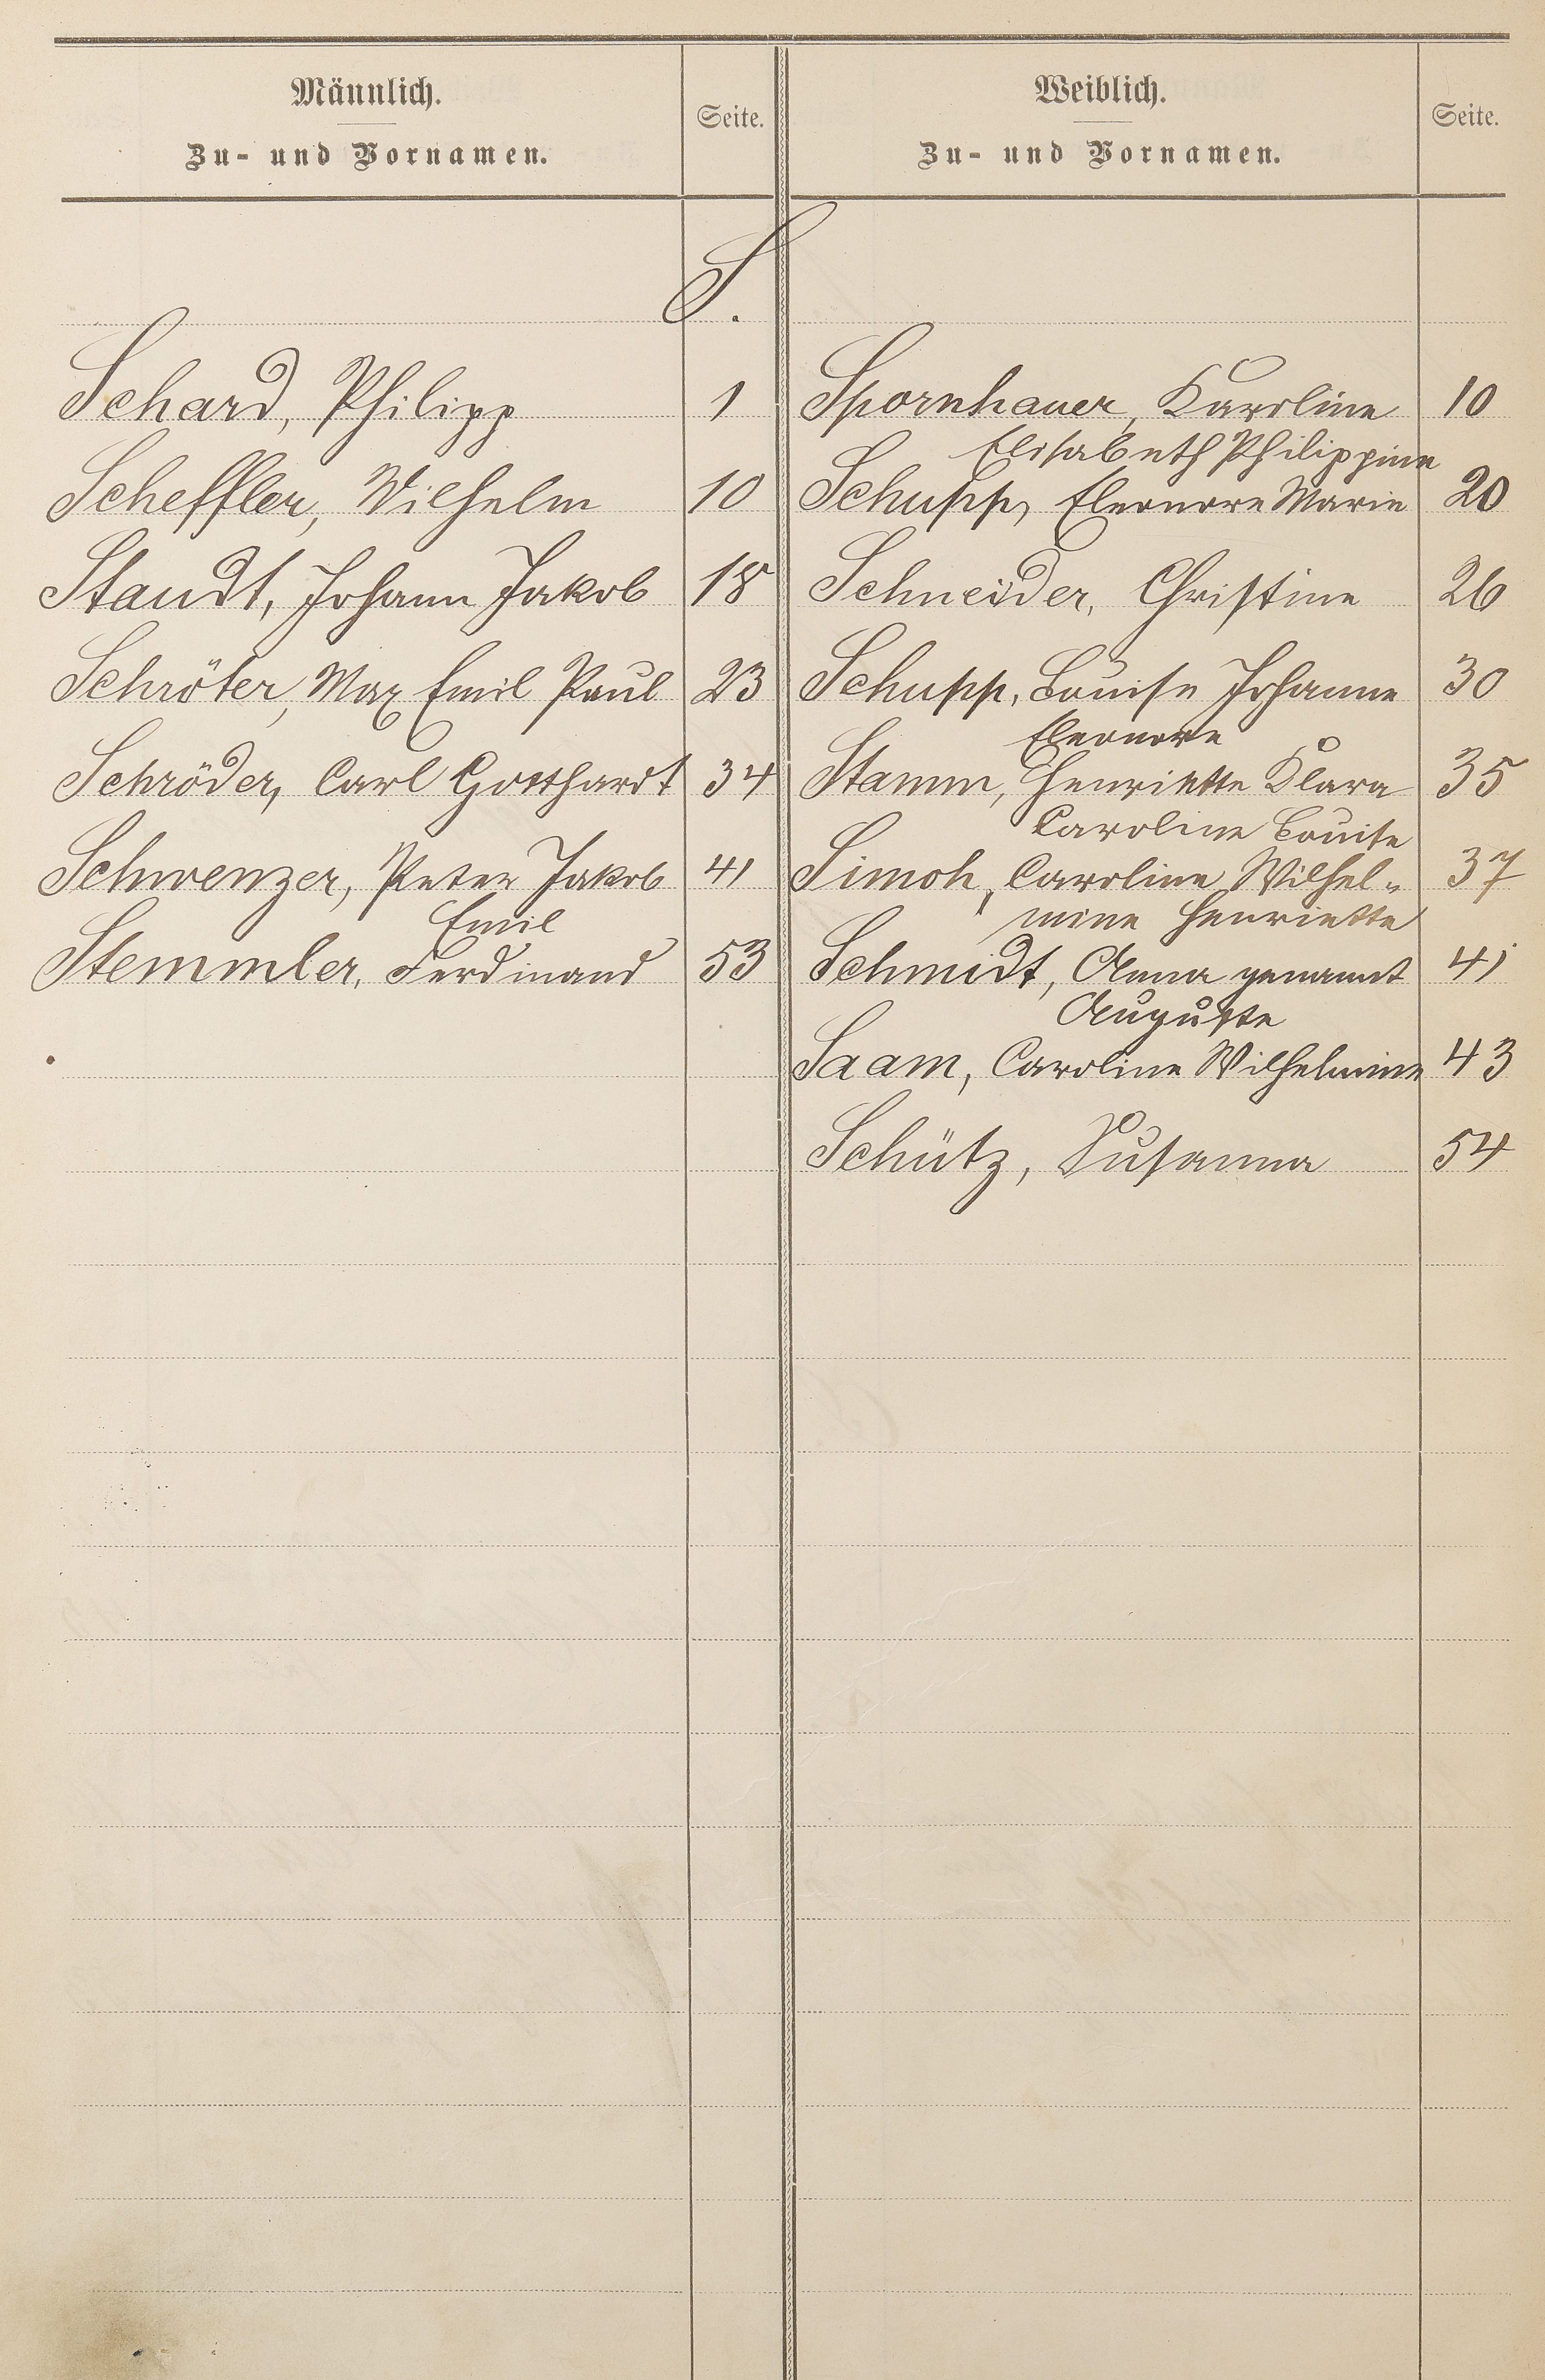 Männlich.
Zu- und Vornamen.
Seite.
Weiblich.
Zu- und Vornamen.
Seite.
S.
Schard, Philipp 1
Scheffler, Wilhelm 10
Staudt, Johann Jakob 18
Schröter, Max Emil Paul 23
Schröder, Carl Gotthardt 34
Schwenzer, Peter Jakob 41
Emil
Stemmler, Ferdinand 53
Spornhauer, Karoline 10
Elisabeth Philippine
Schupp, Eleonore Marie 20
Schneider, Christine 26
Schupp, Louise Johanne 30
Eleonore
Stamm, Henriette Klara 35
Caroline Louise
Simon, Caroline Wilhel- 37
mine Henriette
Schmidt, Anna genannt 41
Auguste
Saam, Caroline Wilhelmine 43
Schütz, Susanna 54